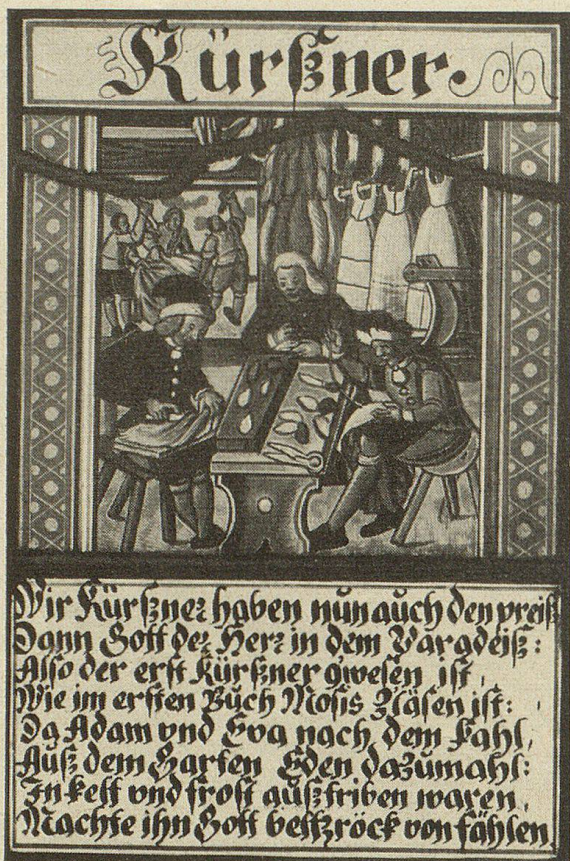 Kürßner.
Wir Kürßner haben nun auch den preiß
Dann Gott der Herr in dem Paradeiß:
Also der erst Kürßner gwesen ist,
Wie im ersten Buch Mosis Zläsen ist:
Da Adam vnd Eva nach dem Fahl,
Auß dem Garten Eden dazumahl:
In kelt vnd frost außtriben waren,
Machte ihn Gott beltzröck von fählen